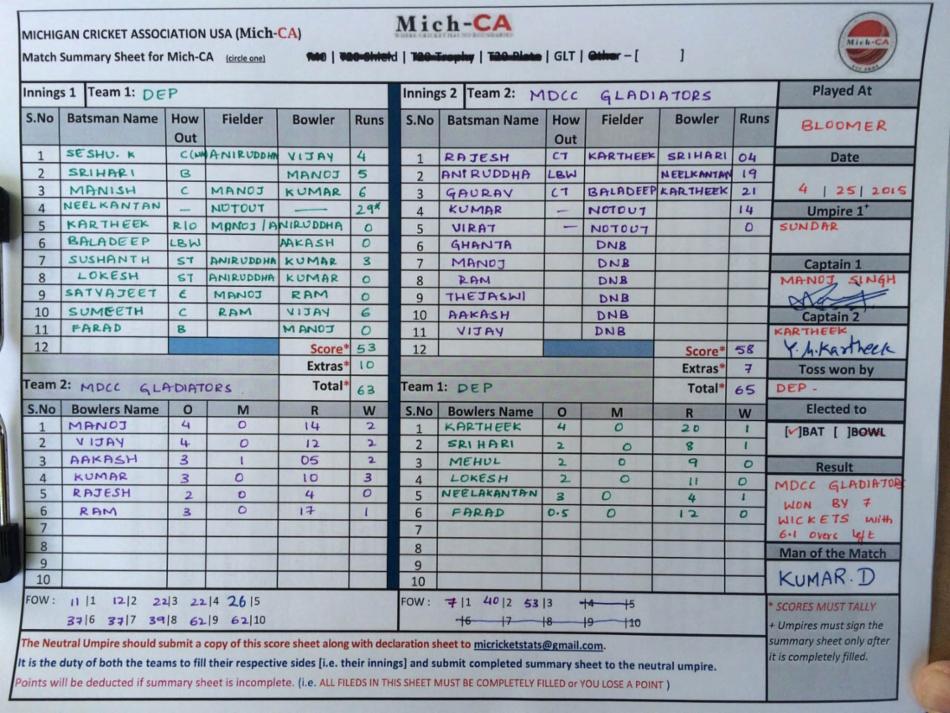 MICHIGAN CRICKET ASSOCIATION USA (Mich-CA)
Mich-CA
WHERE CRICKET HAS NO BOUNDARIES
Mich-CA
Match Summary Sheet for Mich-CA (circle one) F40 | T20-Shield | T20-Trophy | T20-Plate | GLT | Other – [ ]
Innings 1 Team 1: DEP
S.No Batsman Name How Out Fielder Bowler Runs
1 SESHU. K C(WK) ANIRUDDHA VIJAY 4
2 SRIHARI B MANOJ 5
3 MANISH C MANOJ KUMAR 6
4 NEELKANTAN — NOTOUT — 29*
5 KARTHEEK R10 MANOJ / ANIRUDDHA 0
6 BALADEEP LBW AAKASH 0
7 SUSHANTH ST ANIRUDDHA KUMAR 3
8 LOKESH ST ANIRUDDHA KUMAR 0
9 SATYAJEET C MANOJ RAM 0
10 SUMEETH C RAM VIJAY 6
11 FARAD B MANOJ 0
12 Score* 53
Extras* 10
Total* 63
Team 2: MDCC GLADIATORS
S.No Bowlers Name O M R W
1 MANOJ 4 0 14 2
2 VIJAY 4 0 12 2
3 AAKASH 3 1 05 2
4 KUMAR 3 0 10 3
5 RAJESH 2 0 4 0
6 RAM 3 0 17 1
7
8
9
10
FOW : 11|1 12|2 22|3 22|4 26|5
37|6 37|7 39|8 62|9 62|10
Innings 2 Team 2: MDCC GLADIATORS
S.No Batsman Name How Out Fielder Bowler Runs
1 RAJESH CT KARTHEEK SRIHARI 04
2 ANIRUDDHA LBW NEELKANTAN 19
3 GAURAV CT BALADEEP KARTHEEK 21
4 KUMAR — NOTOUT 14
5 VIRAT — NOTOUT 0
6 GHANTA DNB
7 MANOJ DNB
8 RAM DNB
9 THEJASWI DNB
10 AAKASH DNB
11 VIJAY DNB
12 Score* 58
Extras* 7
Total* 65
Team 1: DEP
S.No Bowlers Name O M R W
1 KARTHEEK 4 0 20 1
2 SRIHARI 2 0 8 1
3 MEHUL 2 0 9 0
4 LOKESH 2 0 11 0
5 NEELAKANTAN 3 0 4 1
6 FARAD 0.5 0 12 0
7
8
9
10
FOW : 7|1 40|2 53|3 |4 |5
|6 |7 |8 |9 |10
Played At
BLOOMER
Date
4 | 25 | 2015
Umpire 1+
SUNDAR
Captain 1
MANOJ SINGH
Captain 2
KARTHEEK
Y.M.Kartheek
Toss won by
DEP -
Elected to
[✓]BAT [ ]BOWL
Result
MDCC GLADIATOR
WON BY 7
WICKETS with
6.1 overs left
Man of the Match
KUMAR.D
* SCORES MUST TALLY
+ Umpires must sign the
summary sheet only after
it is completely filled.
The Neutral Umpire should submit a copy of this score sheet along with declaration sheet to micricketstats@gmail.com.
It is the duty of both the teams to fill their respective sides [i.e. their innings] and submit completed summary sheet to the neutral umpire.
Points will be deducted if summary sheet is incomplete. (i.e. ALL FILEDS IN THIS SHEET MUST BE COMPLETELY FILLED or YOU LOSE A POINT )